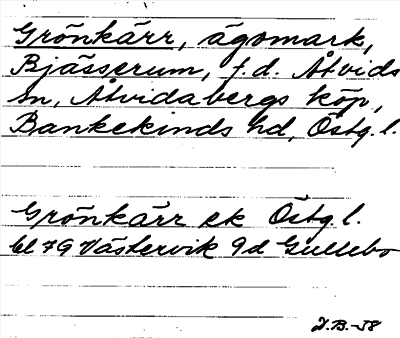 Grönkärr, ägomark,
Bjässerum, f.d. Åtvids
sn, Åtvidabergs köp,
Bankekinds hd, Östg.l.
Grönkärr ek Östg.l.
bl 79 Västervik 9d Gullebo
D.B.-58